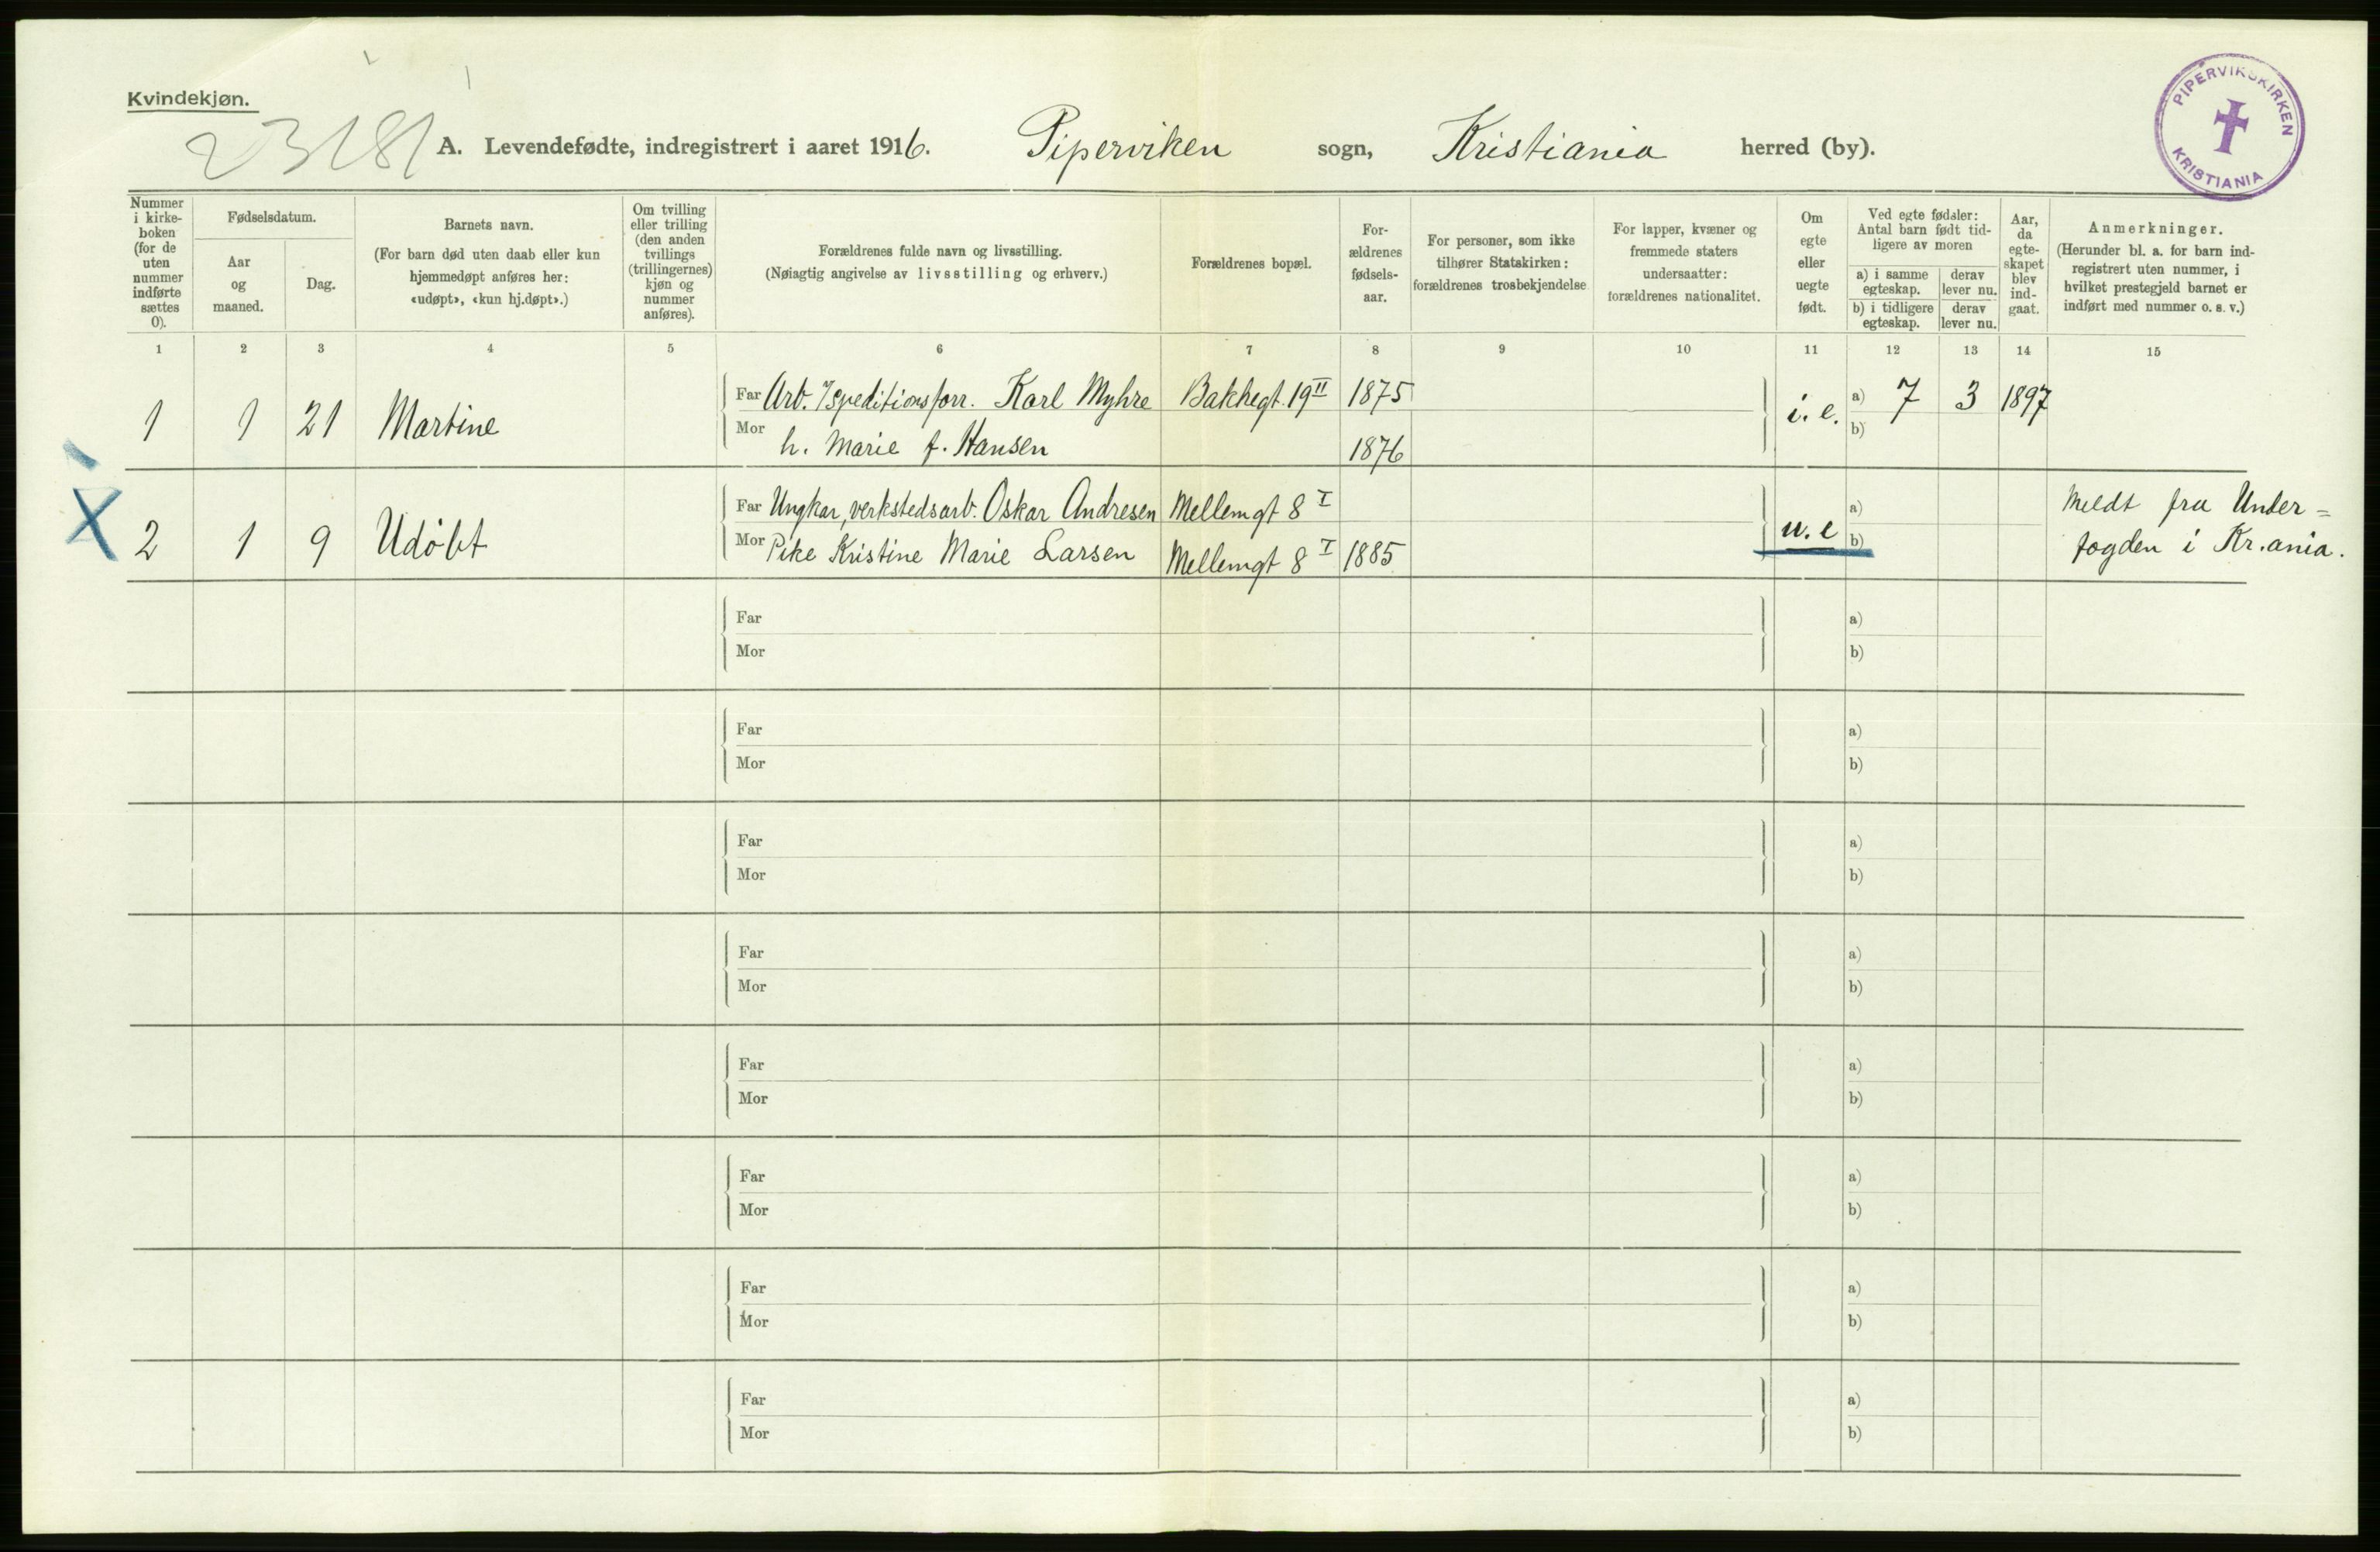 Kvindekjøn.
PIPERVIKSKIRKEN
KRISTIANIA
A. Levendefødte, indregistrert i aaret 1916. Piperviken sogn, Kristiania herred (by).
Nummer i kirke-boken (for de uten nummer indførte sættes 0).
Fødselsdatum.
Aar og maaned.
Dag.
Barnets navn.
(For barn død uten daab eller kun
hjemmedøpt anføres her:
«udøpt», «kun hj.døpt».)
Om tvilling
eller trilling
(den anden
tvillings
(trillingernes)
kjøn og
nummer
anføres).
Forældrenes fulde navn og livsstilling.
(Nøiagtig angivelse av livsstilling og erhverv.)
Forældrenes bopæl.
For-
ældrenes
fødsels-
aar.
For personer, som ikke
tilhører Statskirken:
forældrenes trosbekjendelse
For lapper, kvæner og
fremmede staters
undersaatter:
forældrenes nationalitet.
Om
egte
eller
uegte
født.
Ved egte fødsler:
Antal barn født tid-
ligere av moren
a) i samme egteskap.
derav lever nu.
b) i tidligere egteskap.
derav lever nu.
Aar,
da
egte-
skapet
blev
ind-
gaat.
Anmerkninger.
(Herunder bl. a. for barn ind-
registrert uten nummer, i
hvilket prestegjeld barnet er
indført med nummer o. s. v.)
1 2 3 4 5 6 7 8 9 10 11 12 13 14 15
1 1 21 Martine
Far Arb. i speditionsforr. Karl Myhre Bakkegt. 19 II 1875
Mor h. Marie f. Hansen 1876
i. e. a) 7 3 1897
b)
2 1 9 Udøbt
Far Ungkar, verkstedsarb. Oskar Andresen Mellemgt 8 I
Mor Pike Kristine Marie Larsen Mellemgt 8 I 1885
u. e a)
b)
Meldt fra Under=
fogden i Kr.ania.
Far a)
Mor b)
Far a)
Mor b)
Far a)
Mor b)
Far a)
Mor b)
Far a)
Mor b)
Far a)
Mor b)
Far a)
Mor b)
Far a)
Mor b)